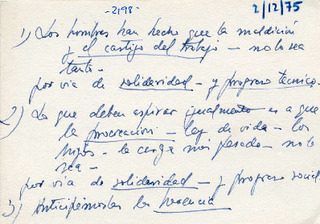 -2198-
2/12/75
1) Los hombres han hecho que la maldición
y el castigo del trabajo - no lo sea
tanto -
por vía de solidaridad - y progreso técnico -
2) La que deben aspirar igualmente es a que
la procreación - ley de vida - los
hijos - la carga más pesada - no lo
sea -
por vía de solidaridad - y progreso social
3) anticipémosles la herencia